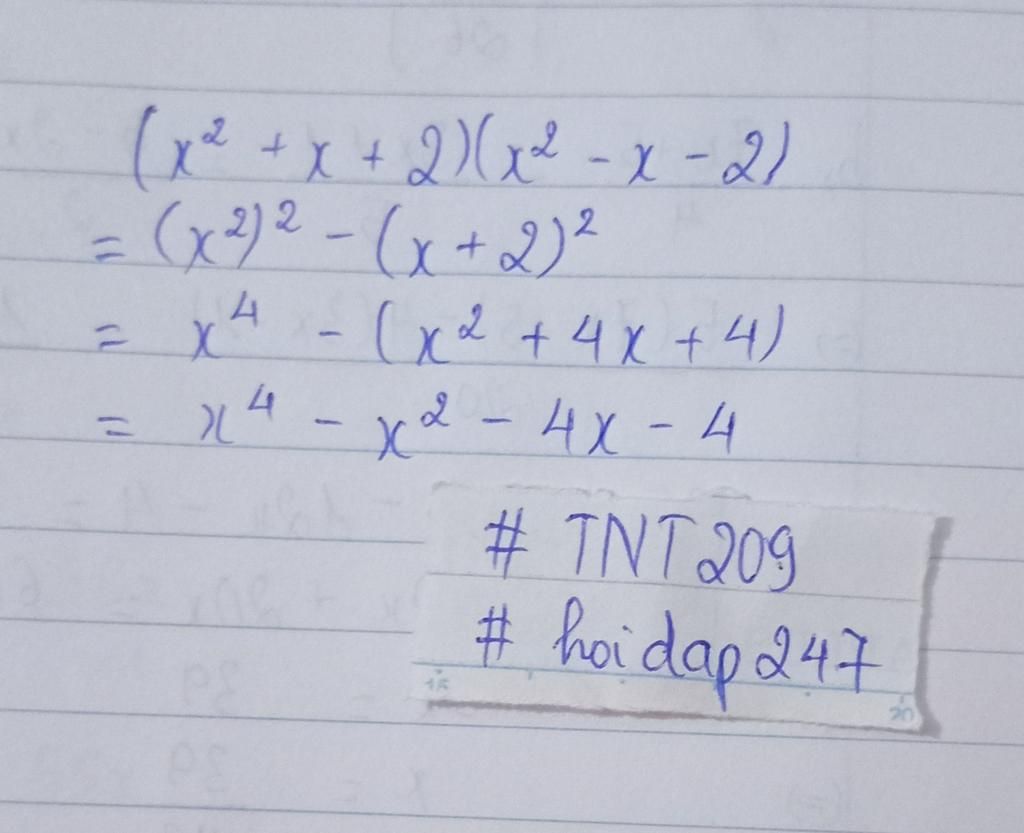 (x² + x + 2)(x² - x - 2)
= (x²)² - (x + 2)²
= x⁴ - (x² + 4x + 4)
= x⁴ - x² - 4x - 4
# TNT209
# hoidap247
20